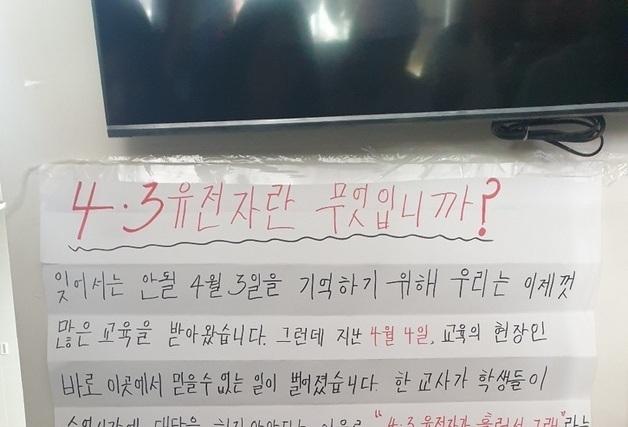 4·3유전자란 무엇입니까?
잊어서는 안될 4월 3일을 기억하기 위해 우리는 이제껏
많은 교육을 받아왔습니다. 그런데 지난 4월 4일, 교육의 현장인
바로 이곳에서 믿을수 없는 일이 벌어졌습니다. 한 교사가 학생들이
"4·3 유전자가 흘러서 그래"라는